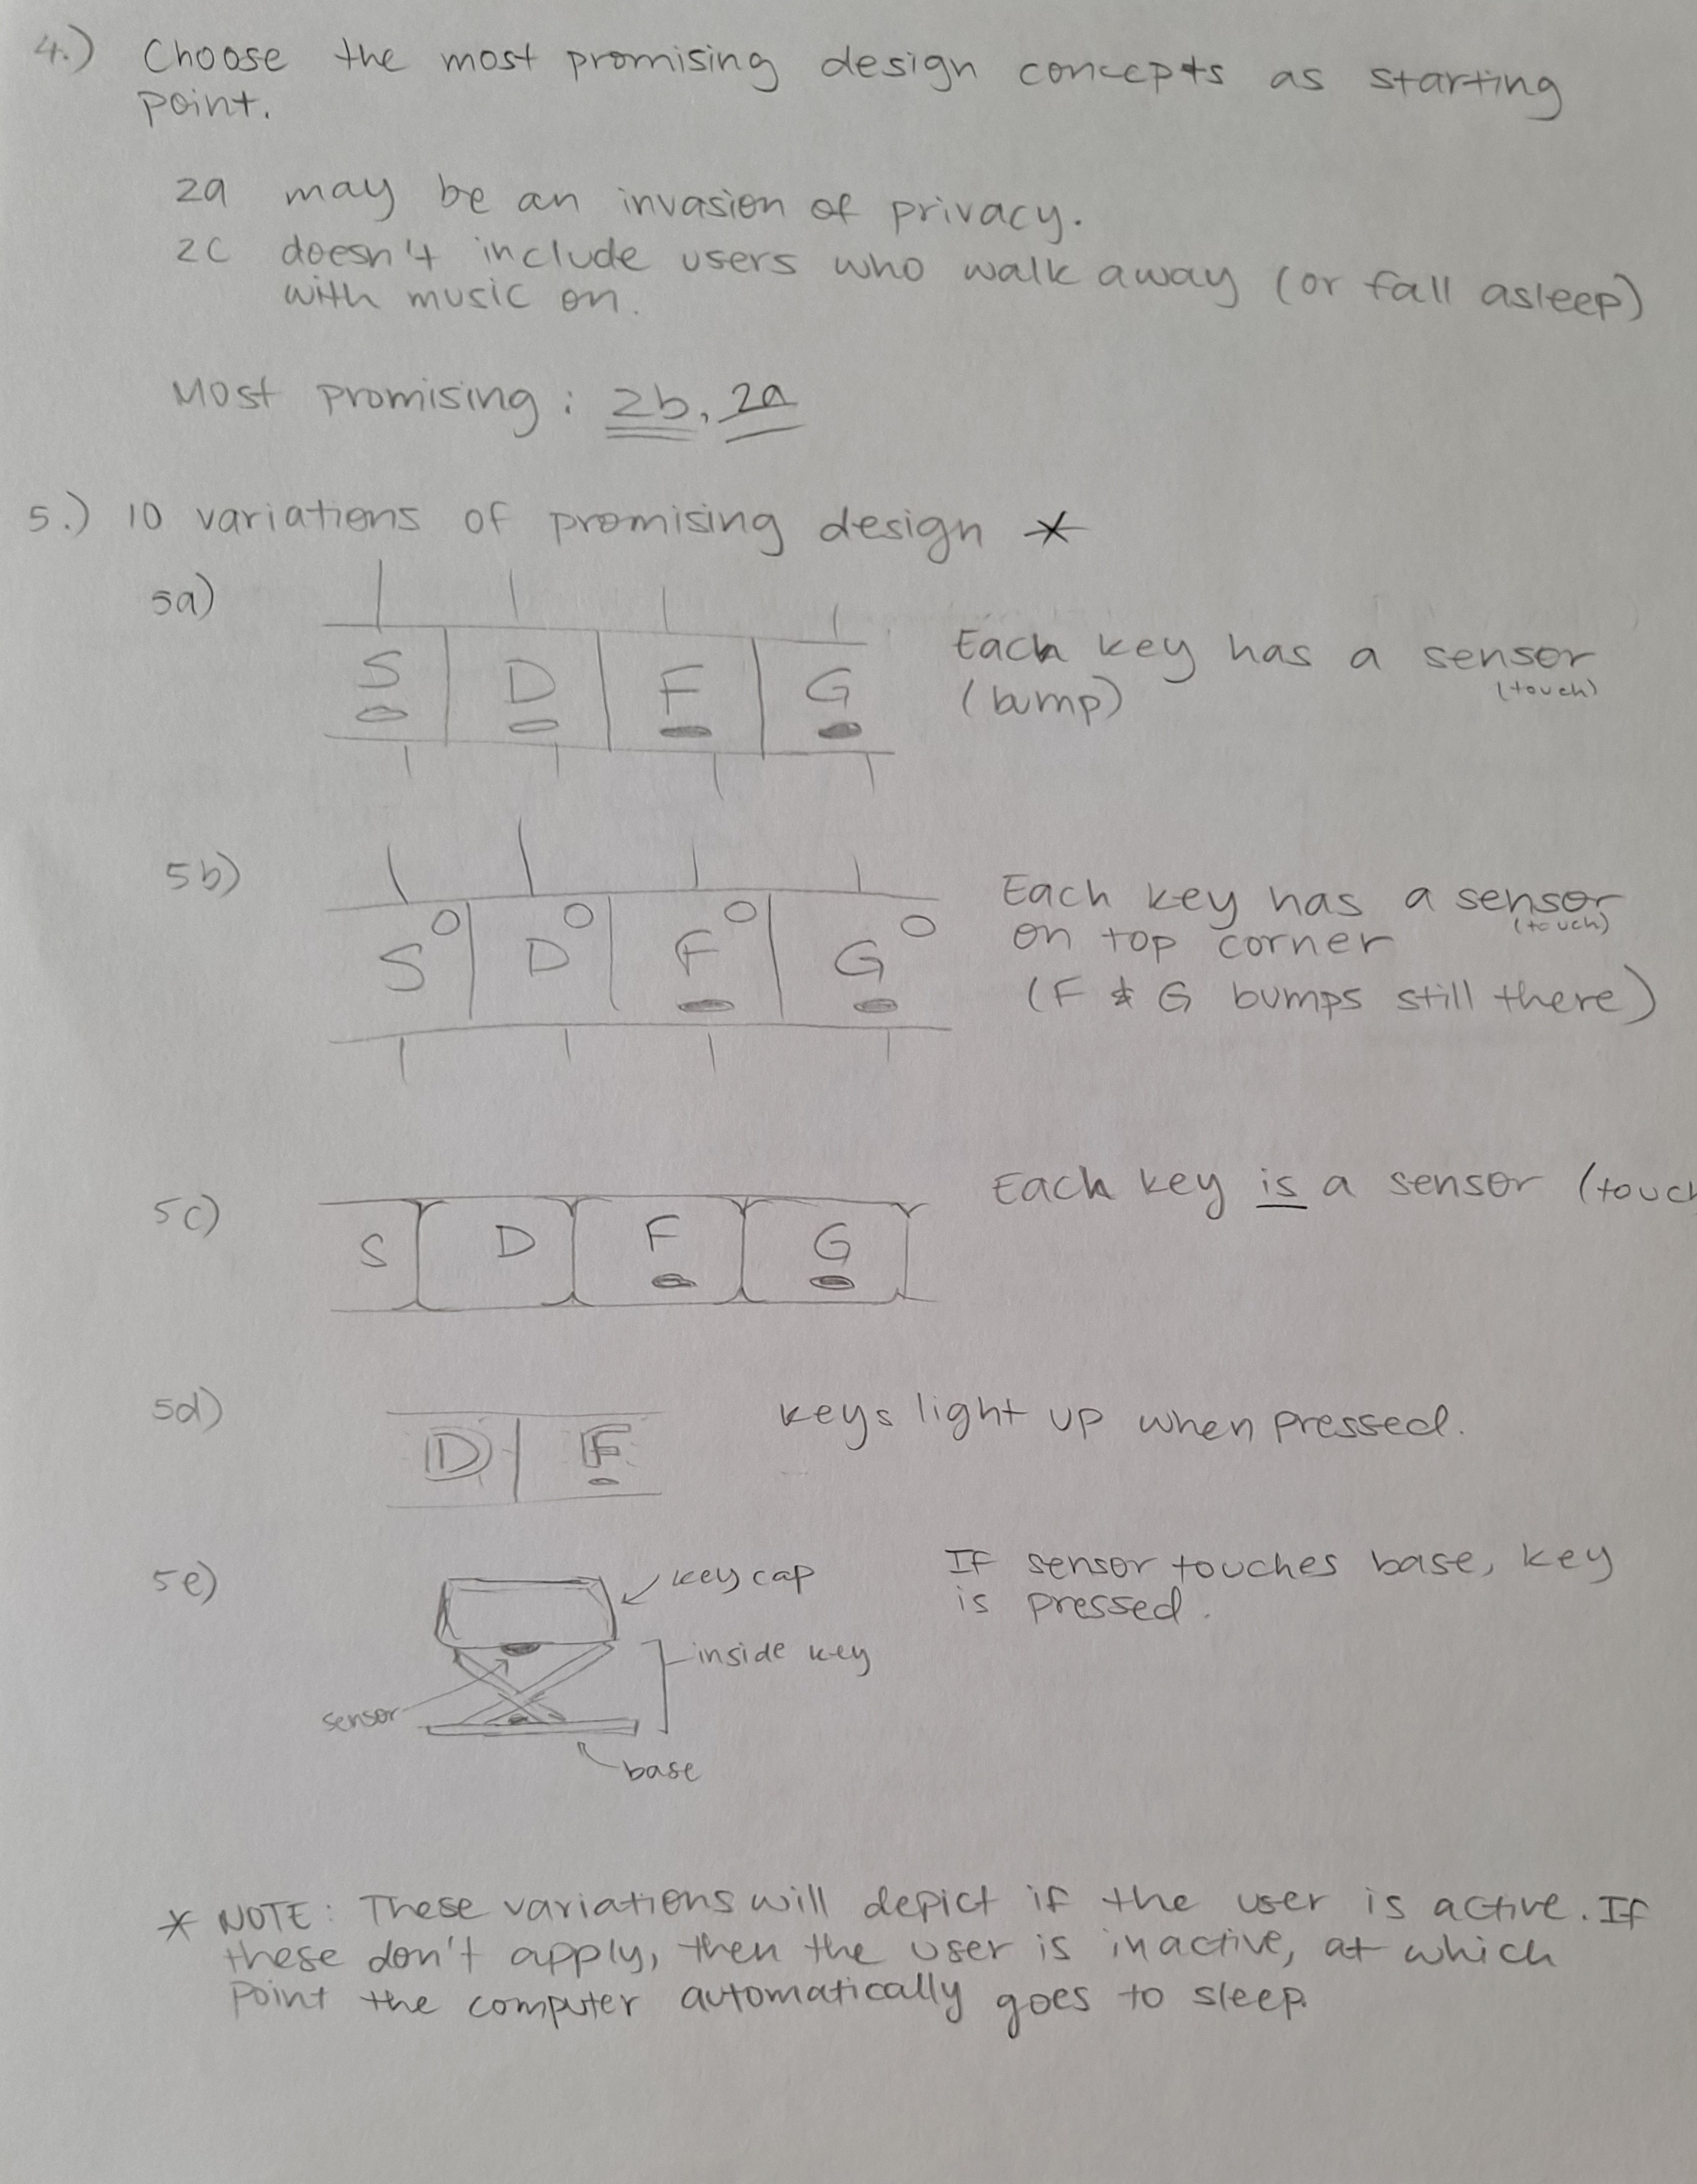 4.) Choose the most promising design concepts as starting
point.
2a may be an invasion of privacy.
2c doesn't include users who walk away (or fall asleep)
with music on.
Most promising: 2b, 2a
5.) 10 variations of promising design *
5a)
S D F G
Each key has a sensor
(touch)
(bump)
5b)
S D F G
Each key has a sensor
(touch)
on top corner
(F & G bumps still there)
5c)
S D F G
Each key is a sensor (touch
5d)
D F
keys light up when pressed.
5e)
key cap
inside key
sensor
base
If sensor touches base, key
is pressed.
* NOTE: These variations will depict if the user is active. If
these don't apply, then the user is inactive, at which
point the computer automatically goes to sleep.